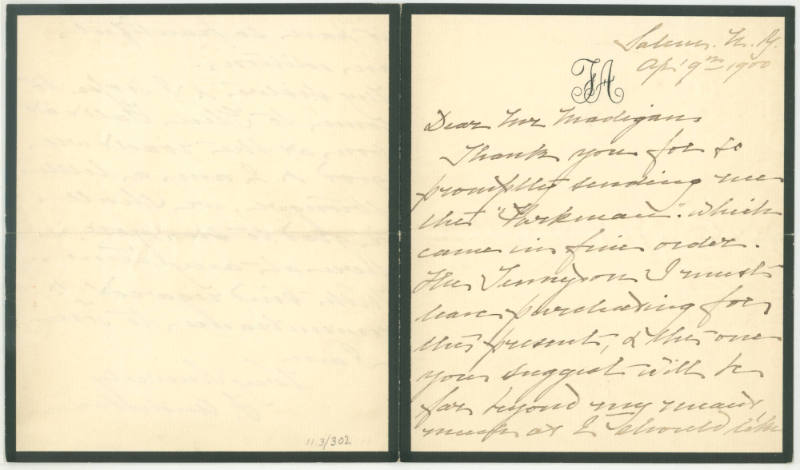 Salem. N. Y.
Ap' 9th 1900
FA
Dear Mr Madigan,
Thank you for so
promptly sending me
the "Parkman". which
came in fine order.
The Tennyson I must
leave purchasing for
the present, & the one
you suggest will be
far beyond my means
much as I should like
11.3/302